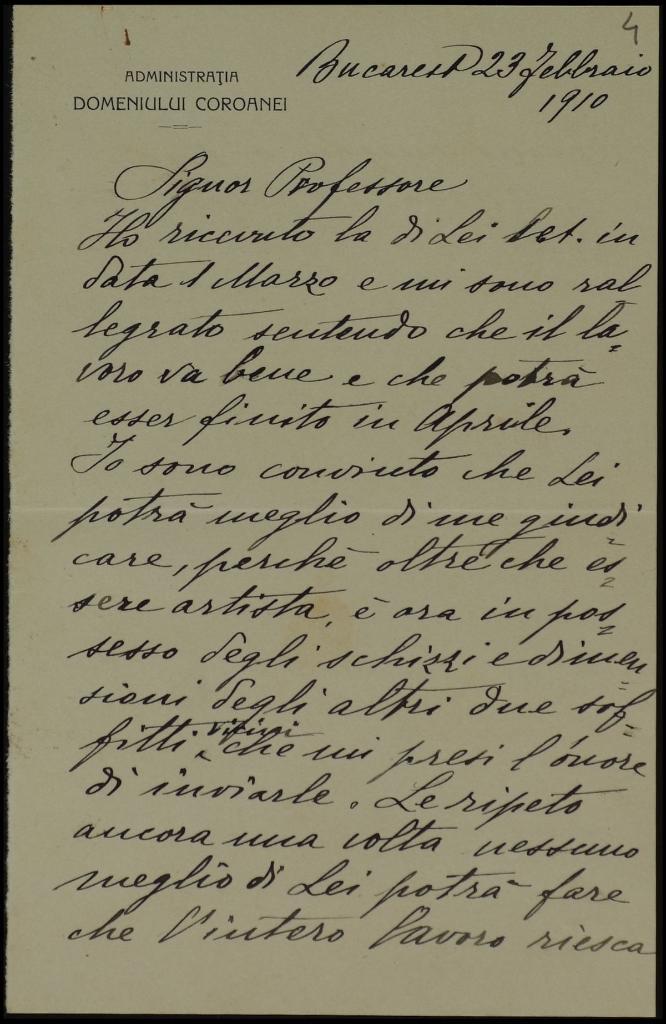 4
ADMINISTRAŢIA
DOMENIULUI COROANEI
Bucarest 23 Febbraio
1910
Signor Professore
Ho ricevuto la di Lei let. in
data 1 Marzo e mi sono ral
legrato sentendo che il la=
voro va bene e che potrà
esser finito in Aprile.
Io sono convinto che Lei
potrà meglio di me giudi=
care, perchè oltre che es=
sere artista, è ora in pos=
sesso degli schizzi e dimen=
sioni degli altri due sof=
fitti vicini che mi presi l'onore
di inviarle. Le ripeto
ancora una volta nessuno
meglio di Lei potrà fare
che l'intero lavoro riesca